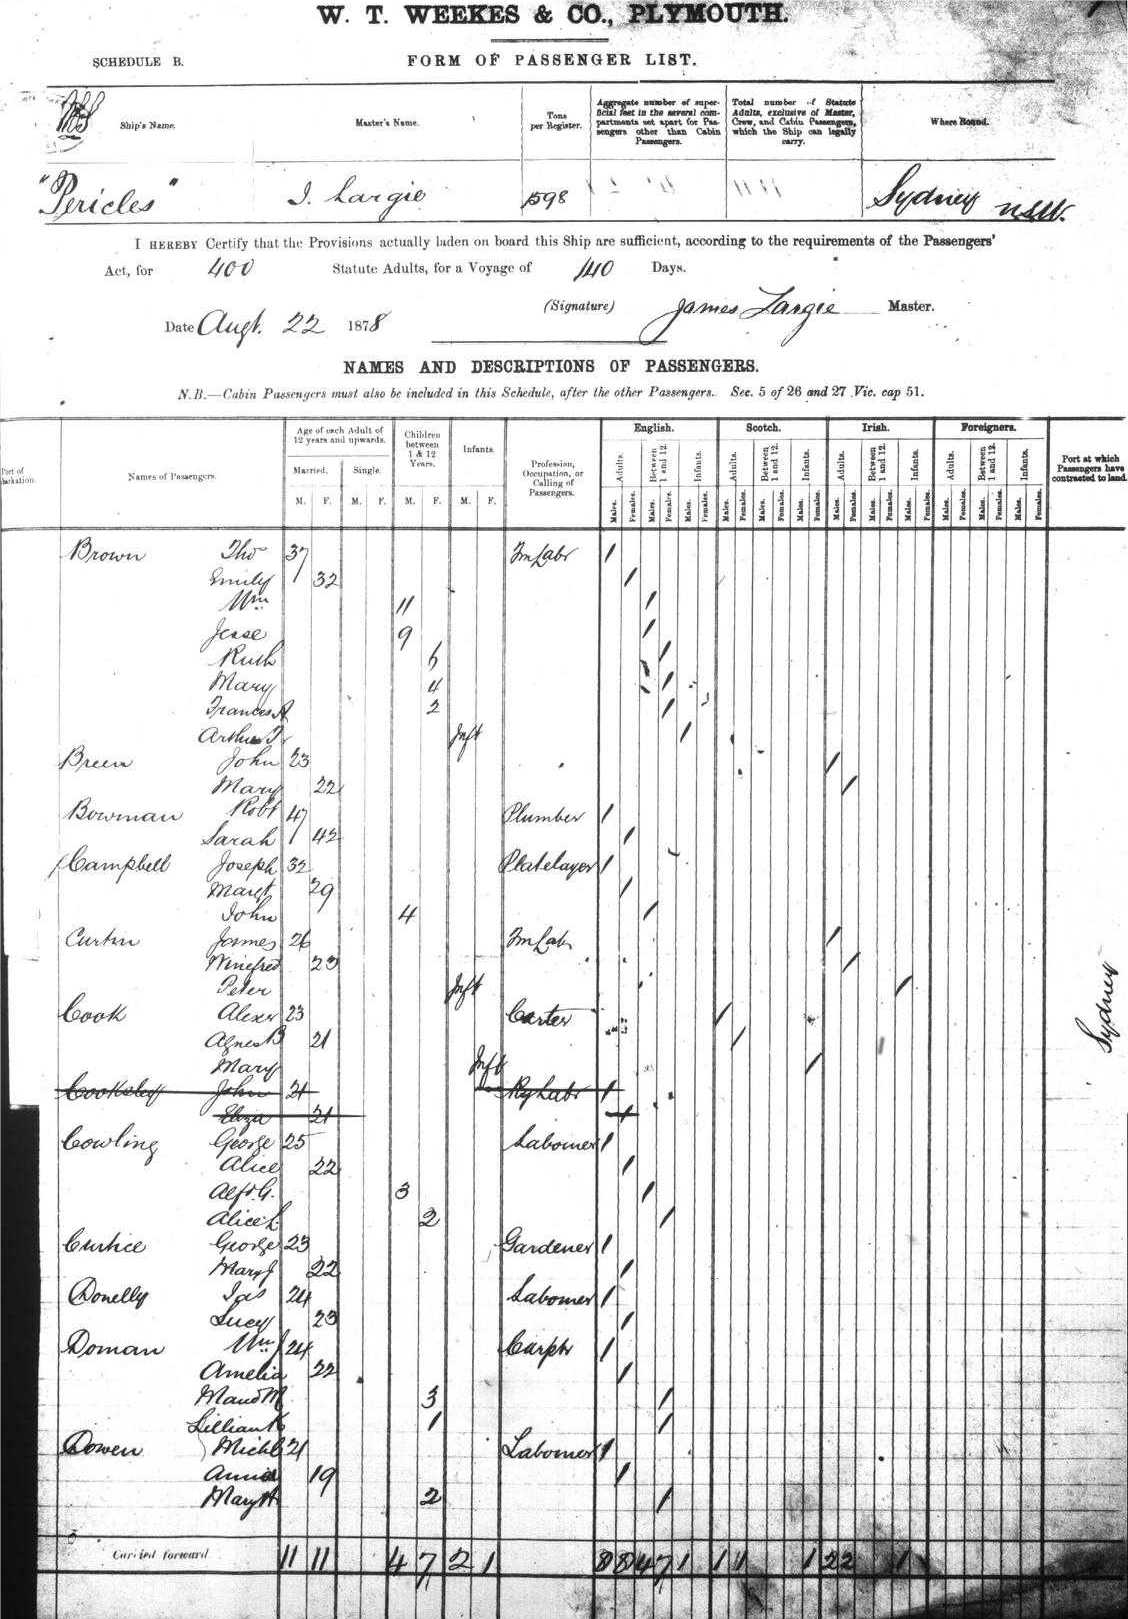 W. T. WEEKES & CO., PLYMOUTH.
SCHEDULE B. FORM OF PASSENGER LIST.
Ship's Name. Master's Name. Tons per Register. Aggregate number of superficial feet in the several compartments set apart for Passengers other than Cabin Passengers. Total number of Statute Adults, exclusive of Master, Crew, and Cabin Passengers, which the Ship can legally carry. Where Bound.
"Pericles" J. Largie 1598 Sydney NSW.
I HEREBY Certify that the Provisions actually laden on board this Ship are sufficient, according to the requirements of the Passengers'
Act, for 400 Statute Adults, for a Voyage of 140 Days.
(Signature) James Largie Master.
Date Augt. 22 1878
NAMES AND DESCRIPTIONS OF PASSENGERS.
N.B.—Cabin Passengers must also be included in this Schedule, after the other Passengers. Sec. 5 of 26 and 27 Vic. cap 51.
Names of Passengers. Age of each Adult of 12 years and upwards. Children between 1 & 12 Years. Infants. Profession, Occupation, or Calling of Passengers. English. Scotch. Irish. Foreigners. Port at which Passengers have contracted to land.
Married. Single.
Adults. Between 1 and 12. Infants. Adults. Between 1 and 12. Infants. Adults. Between 1 and 12. Infants. Adults. Between 1 and 12. Infants.
M. F. M. F. M. F. M. F. Males. Females. Males. Females. Males. Females. Males. Females. Males. Females. Males. Females. Males. Females. Males. Females. Males. Females. Males. Females. Males. Females. Males. Females.
Brown Tho 37 Fm Labr 1
Emily 32 1
Wm 11 1
Jesse 9 1
Ruth 6 1
Mary 4 1
Frances A 2 1
Arthur T. Inft 1
Breen John 23 1
Mary 22 1
Bowman Robt 47 Plumber 1
Sarah 42 1
Campbell Joseph 32 Platelayer 1
Margt 29 1
John 4 1
Curtin James 26 Fm Lab 1
Winifred 23 1
Peter Inft 1
Cook Alexr 23 Carter 1
Agnes B 21 1
Mary Inft 1
Cooksley John 21 Ry Labr 1
Eliza 21 1
Cowling George 25 Labourer 1
Alice 22 1
Alfd. G. 3 1
Alice L. 2 1
Curtice George 23 Gardener 1
Mary J 22 1
Donelly Jas 24 Labourer 1
Lucy 23 1
Doman Wm J 24 Carptr 1
Amelia 22 1
Maud M 3 1
Lillian K 1 1
Dowen Michl 21 Labourer 1
Annie 19 1
Mary H 2 1
Sydney
Carried forward 11 11 4 7 2 1 8 8 4 7 1 1 1 1 2 2 1